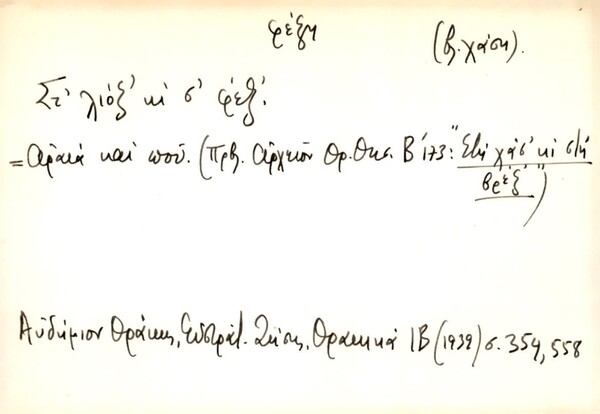 φέξη (β. χάση).
Στ' λιόξ' κι σ' φέξ'.
= αραιά καί πού. (Πρβ. Αρχείον Θρ. Θησ. Β' 173: "Στή χάσ' κι στή
βρέξ'")
Αὐδήμιον Θράκης, Εὐστράτ. Ζήση, Θρακικά ΙΒ (1939) σ. 354, 558